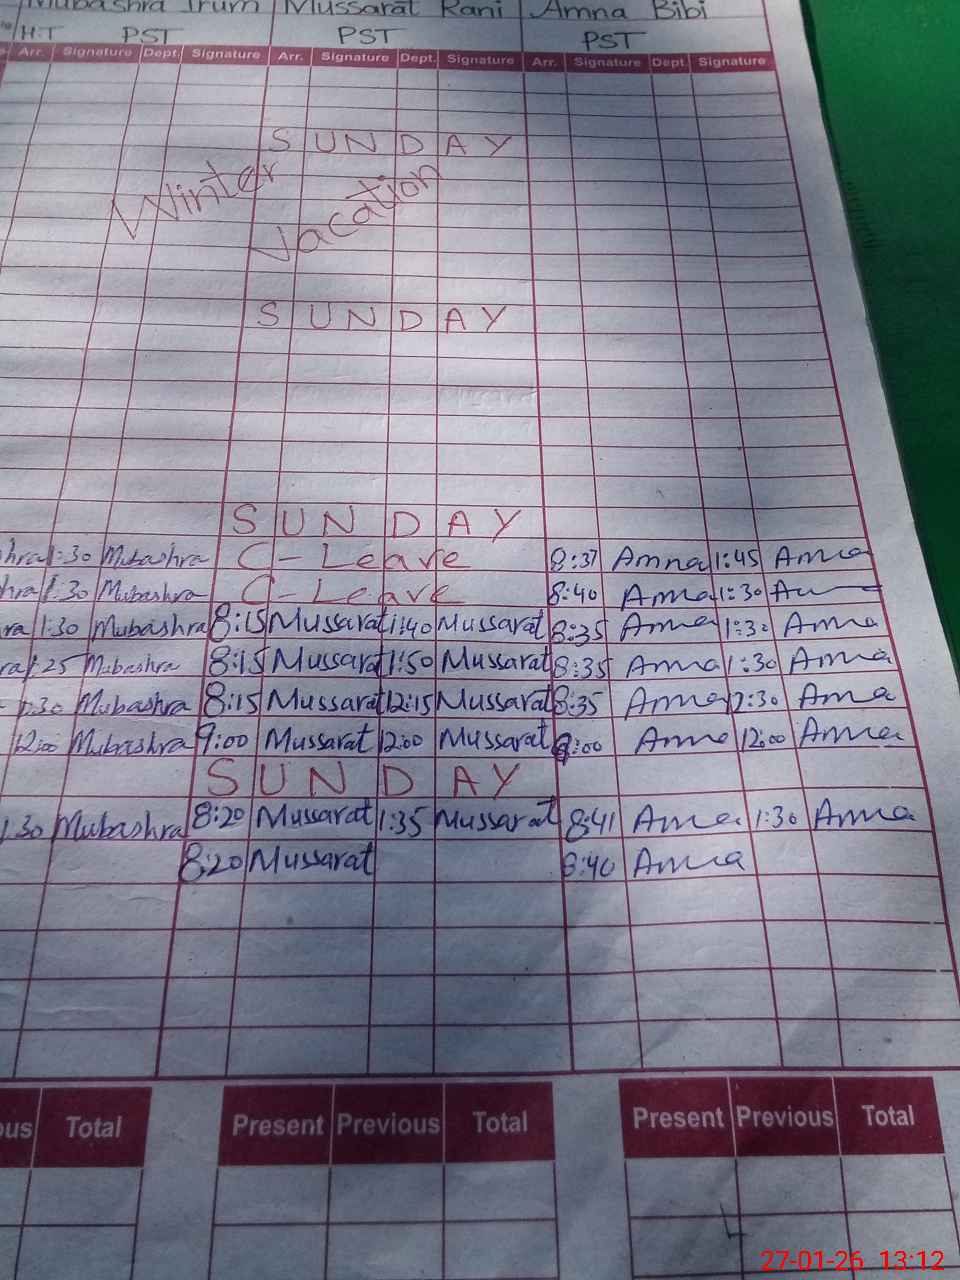 Mubashra Irum Mussarat Rani Amna Bibi
H:T PST PST PST
Arr. Signature Dept. Signature Arr. Signature Dept. Signature Arr. Signature Dept. Signature
SUNDAY
Winter
Vacation
SUNDAY
SUNDAY
hra 1:30 Mubashra C-Leave 8:37 Amna 1:45 Amna
hra 1:30 Mubashra C-Leave 8:40 Amna 1:30
ra 1:30 Mubashra 8:15 Mussarat 1:40 Mussarat 8:35 Amna 1:30 Amna
ra 1:25 Mubashra 8:15 Mussarat 1:50 Mussarat 8:35 Amna 1:30 Amna
Mubashra 8:15 Mussarat 12:15 Mussarat 8:35 Amna Amna
12:00 Mubashra 9:00 Mussarat 12:00 Mussarat 9:00 Amna 12:00 Amna
SUNDAY
1:30 Mubashra 8:20 Mussarat 1:35 Mussarat 8:41 Amna 1:30 Amna
8:20 Mussarat 8:40 Amna
ous Total Present Previous Total Present Previous Total
27-01-26 13:12